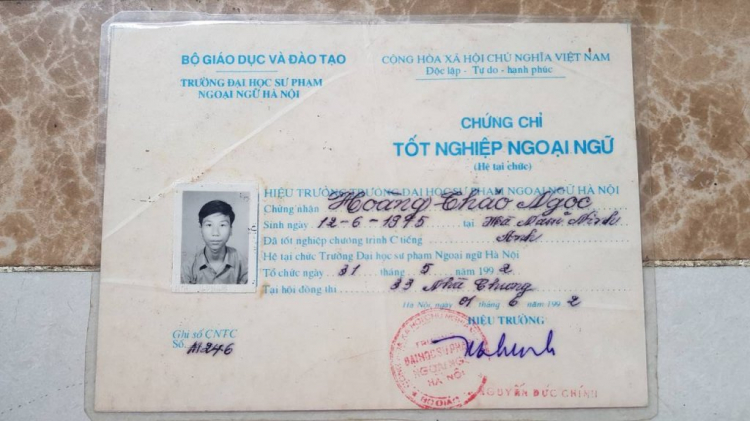 BỘ GIÁO DỤC VÀ ĐÀO TẠO
TRƯỜNG ĐẠI HỌC SƯ PHẠM
NGOẠI NGỮ HÀ NỘI
CỘNG HÒA XÃ HỘI CHỦ NGHĨA VIỆT NAM
Độc lập - Tự do - hạnh phúc
CHỨNG CHỈ
TỐT NGHIỆP NGOẠI NGỮ
(Hệ tại chức)
HIỆU TRƯỞNG TRƯỜNG ĐẠI HỌC SƯ PHẠM NGOẠI NGỮ HÀ NỘI
Chứng nhận Hoàng Thao Ngọc
Sinh ngày 12-6-1975 tại Hà Nam Ninh
Đã tốt nghiệp chương trình C tiếng Anh
Hệ tại chức Trường Đại học sư phạm Ngoại ngữ Hà Nội
Tổ chức ngày 31 tháng 5 năm 1992
Tại hội đồng thi 33 Nhà Chung
Hà Nội, ngày 01 tháng 6 năm 1992
HIỆU TRƯỞNG
Ghi sổ CNTC
Số A1246
ĐẠI HỌC SƯ PHẠM
NGOẠI NGỮ
HÀ NỘI
NGUYỄN ĐỨC CHÍNH